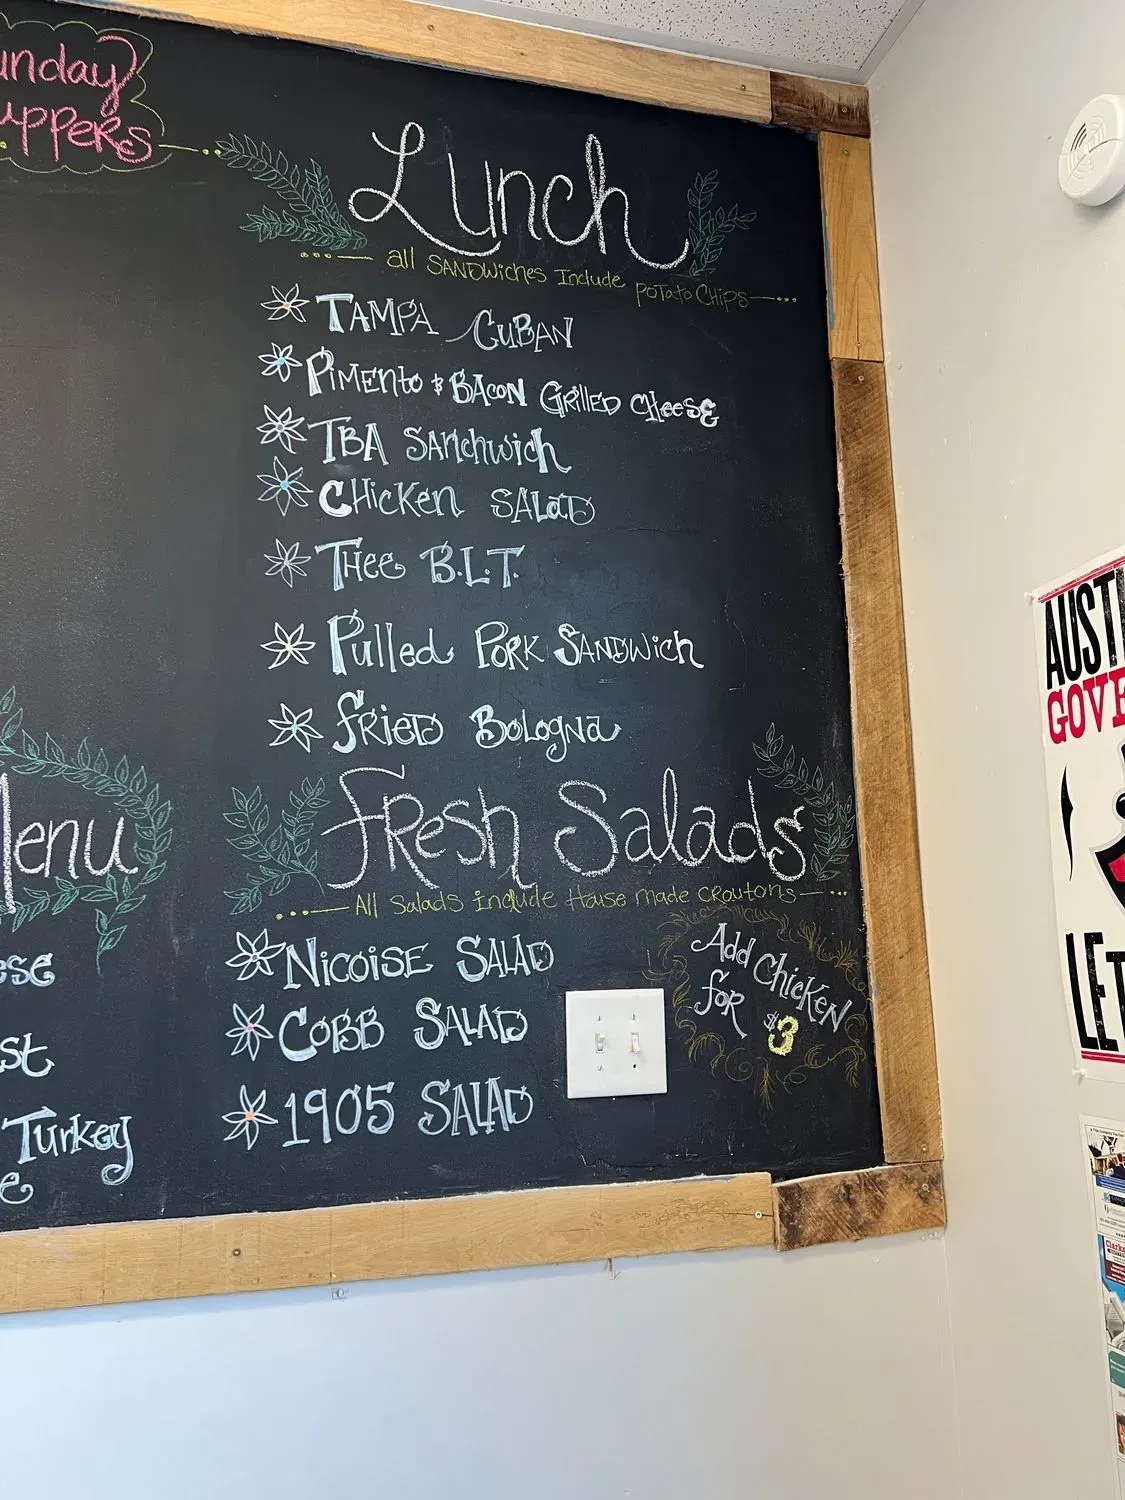 unday
uppers
Lunch
all SANDWiCHES Include POTATO CHIPS
TAMPA CUBAN
PiMENto & BACON GRillED CHeeSE
TBA SANdwich
CHicKen SALAD
THEE B.L.T.
Pulled PORK SANDWich
fRiED Bologna
fResh Salads
All Salads Include House made croutons
NicoiSE SALAD
COBB SALAD
1905 SALAD
Add CHicKEN
foR $3
enu
ese
st
Turkey
e
AUSTI
GOVE
LET